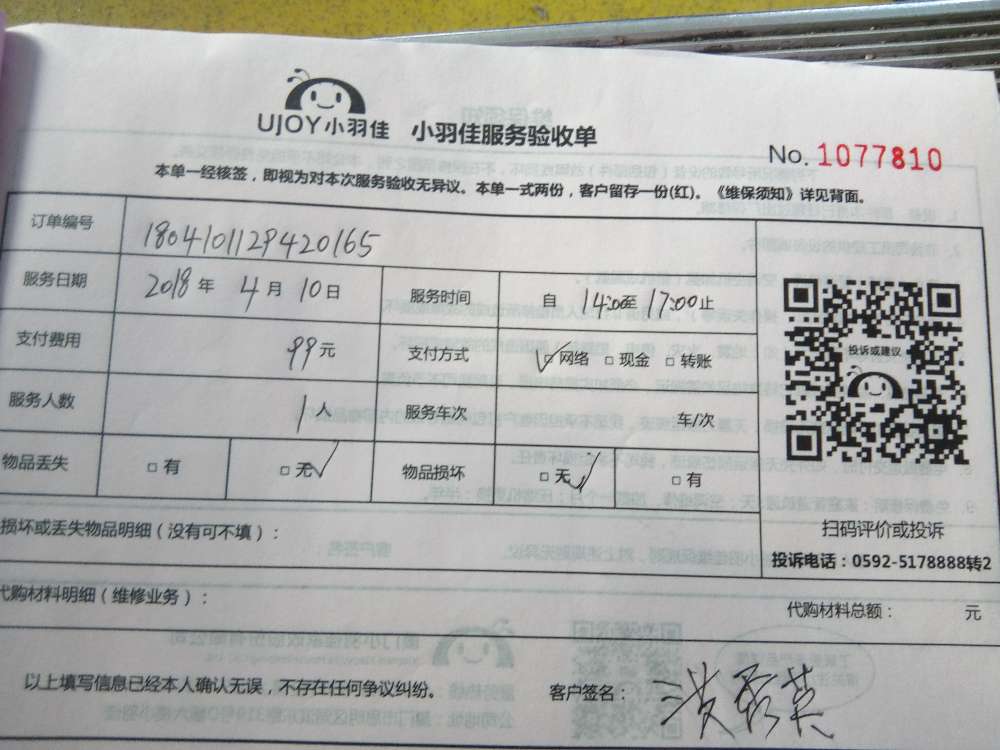 UJOY小羽佳 小羽佳服务验收单
No. 1077810
本单一经核签，即视为对本次服务验收无异议。本单一式两份，客户留存一份(红)。《维保须知》详见背面。
订单编号 1804101129420165
服务日期 2018年 4月 10日 服务时间 自 14:00至 17:00止
支付费用 99元 支付方式 ☑网络 □现金 □转账
服务人数 1人 服务车次 车/次
物品丢失 □有 ☑无 物品损坏 ☑无 □有
投诉或建议
扫码评价或投诉
投诉电话：0592-5178888转2
损坏或丢失物品明细（没有可不填）：
代购材料明细（维修业务）： 代购材料总额： 元
以上填写信息已经本人确认无误，不存在任何争议纠纷。 客户签名：